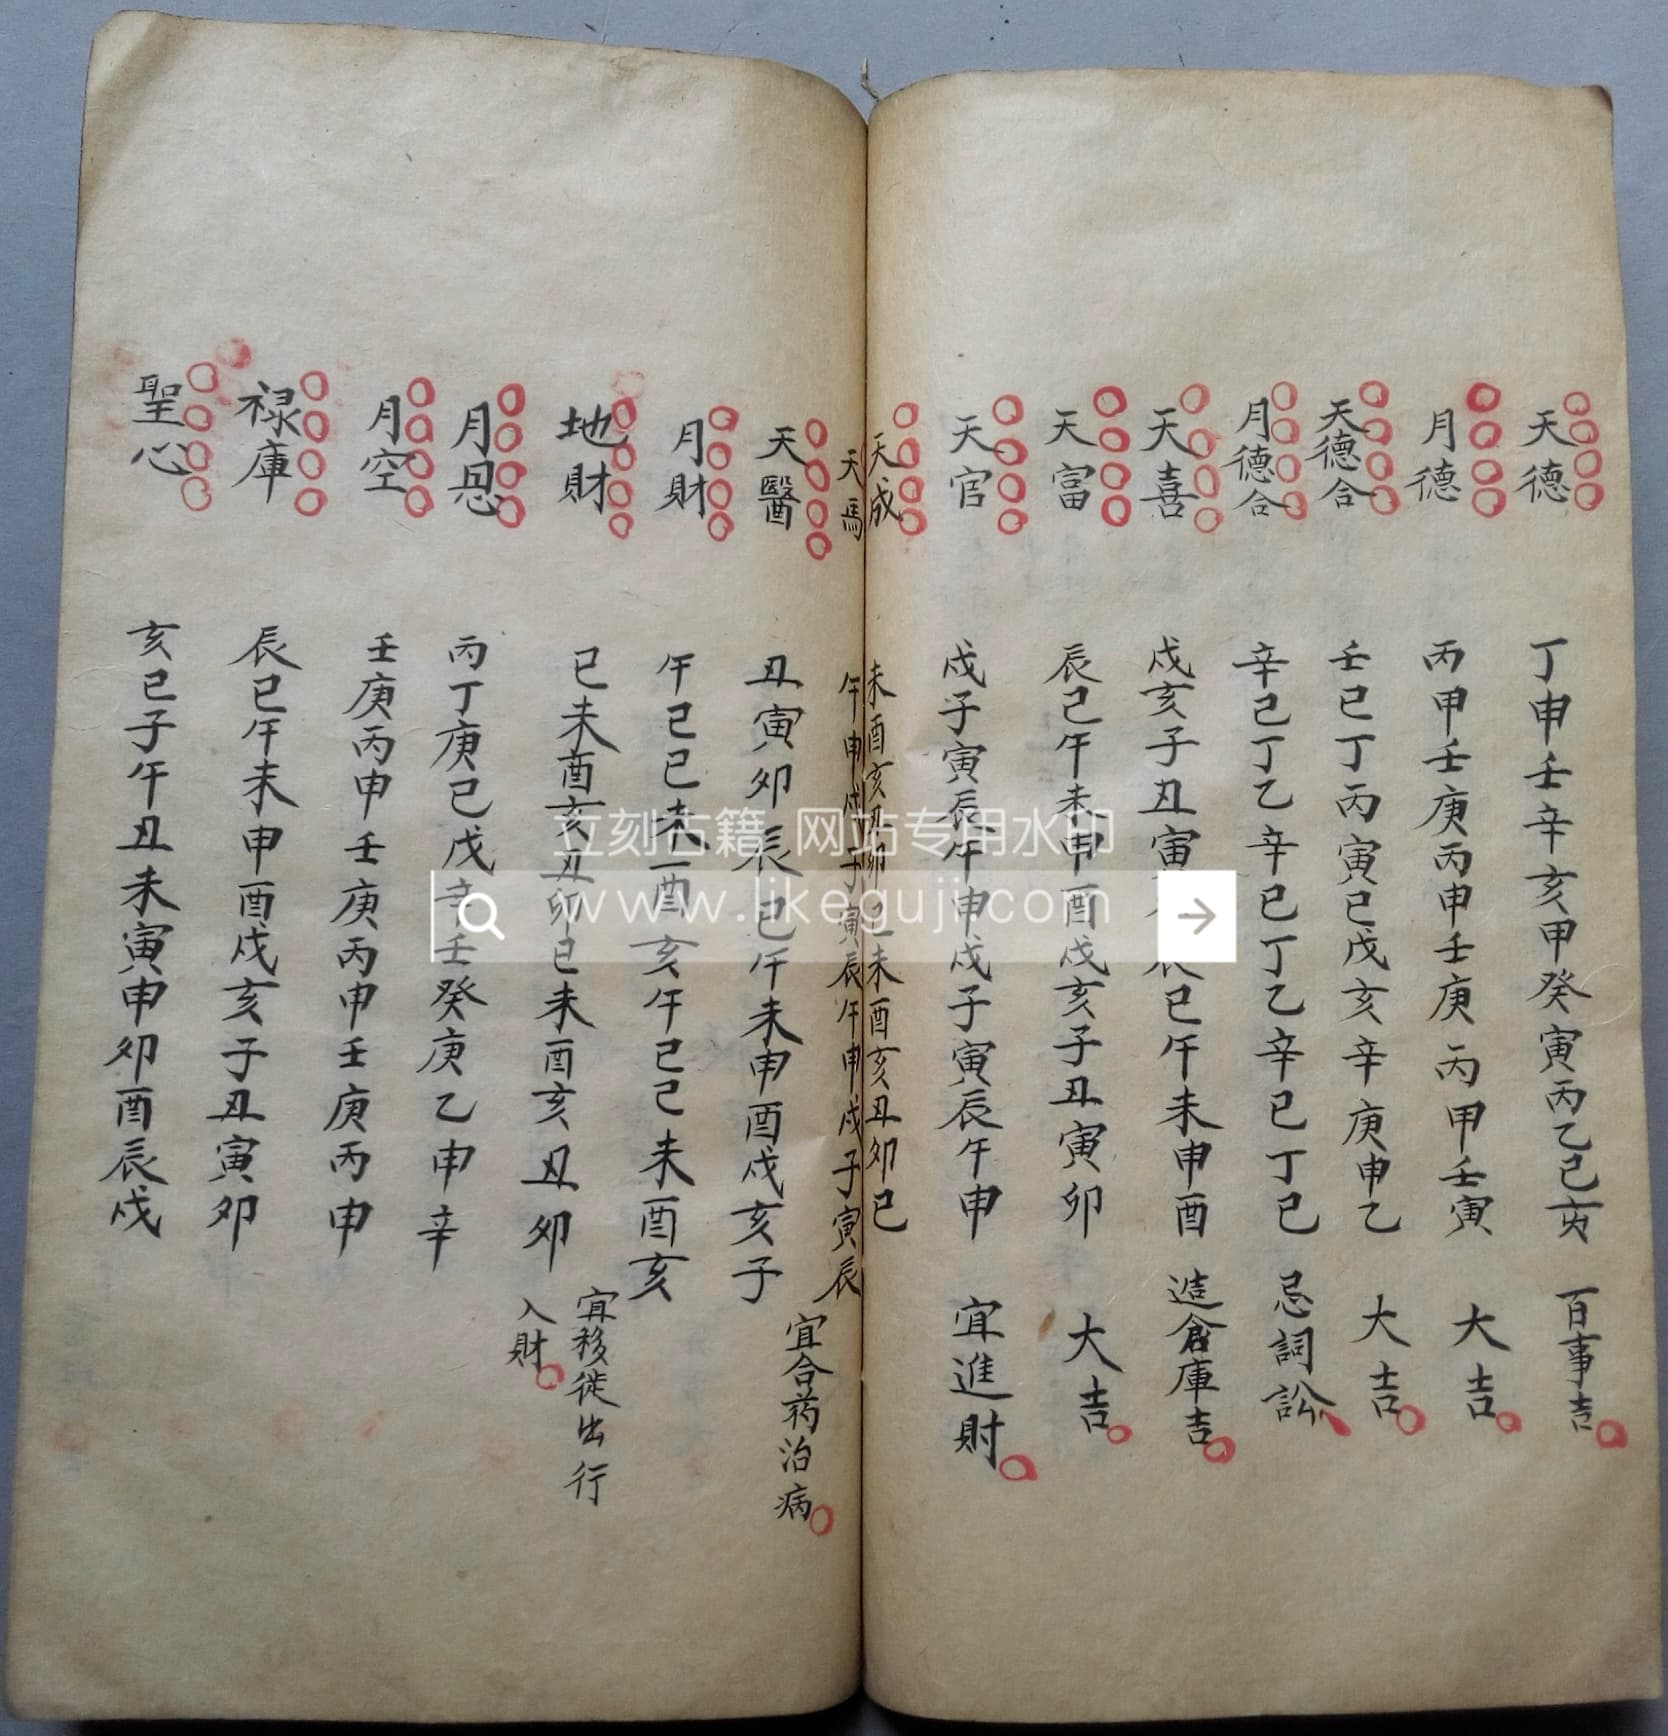 天德 丁申壬辛亥甲癸寅丙乙己 百事吉
月德 丙甲壬庚丙申壬庚丙甲壬寅 大吉
天德合 壬巳丁丙寅己戊亥辛庚申乙 大吉
月德合 辛己丁乙辛巳丁乙辛己丁巳 忌詞訟
天喜 戌亥子丑寅 辰巳午未申酉 造倉庫吉
天富 辰巳午未申酉戌亥子丑寅卯 大吉
天官 戌子寅辰午申戌子寅辰午申 宜進財
天成 未酉亥丑卯巳未酉亥丑卯巳
天馬 午申戌子寅辰午申戌子寅辰
天醫 丑寅卯辰巳午未申酉戌亥子 宜合药治病
月財 午己巳未酉亥午己己未酉亥
地財 巳未酉亥丑卯巳未酉亥丑卯 宜移徙出行
入財
月恩 丙丁庚己戊辛壬癸庚乙申辛
月空 壬庚丙申壬庚丙申壬庚丙申
禄庫 辰巳午未申酉戌亥子丑寅卯
聖心 亥巳子午丑未寅申卯酉辰戌
立刻古籍 网站专用水印
www.likeguji.com